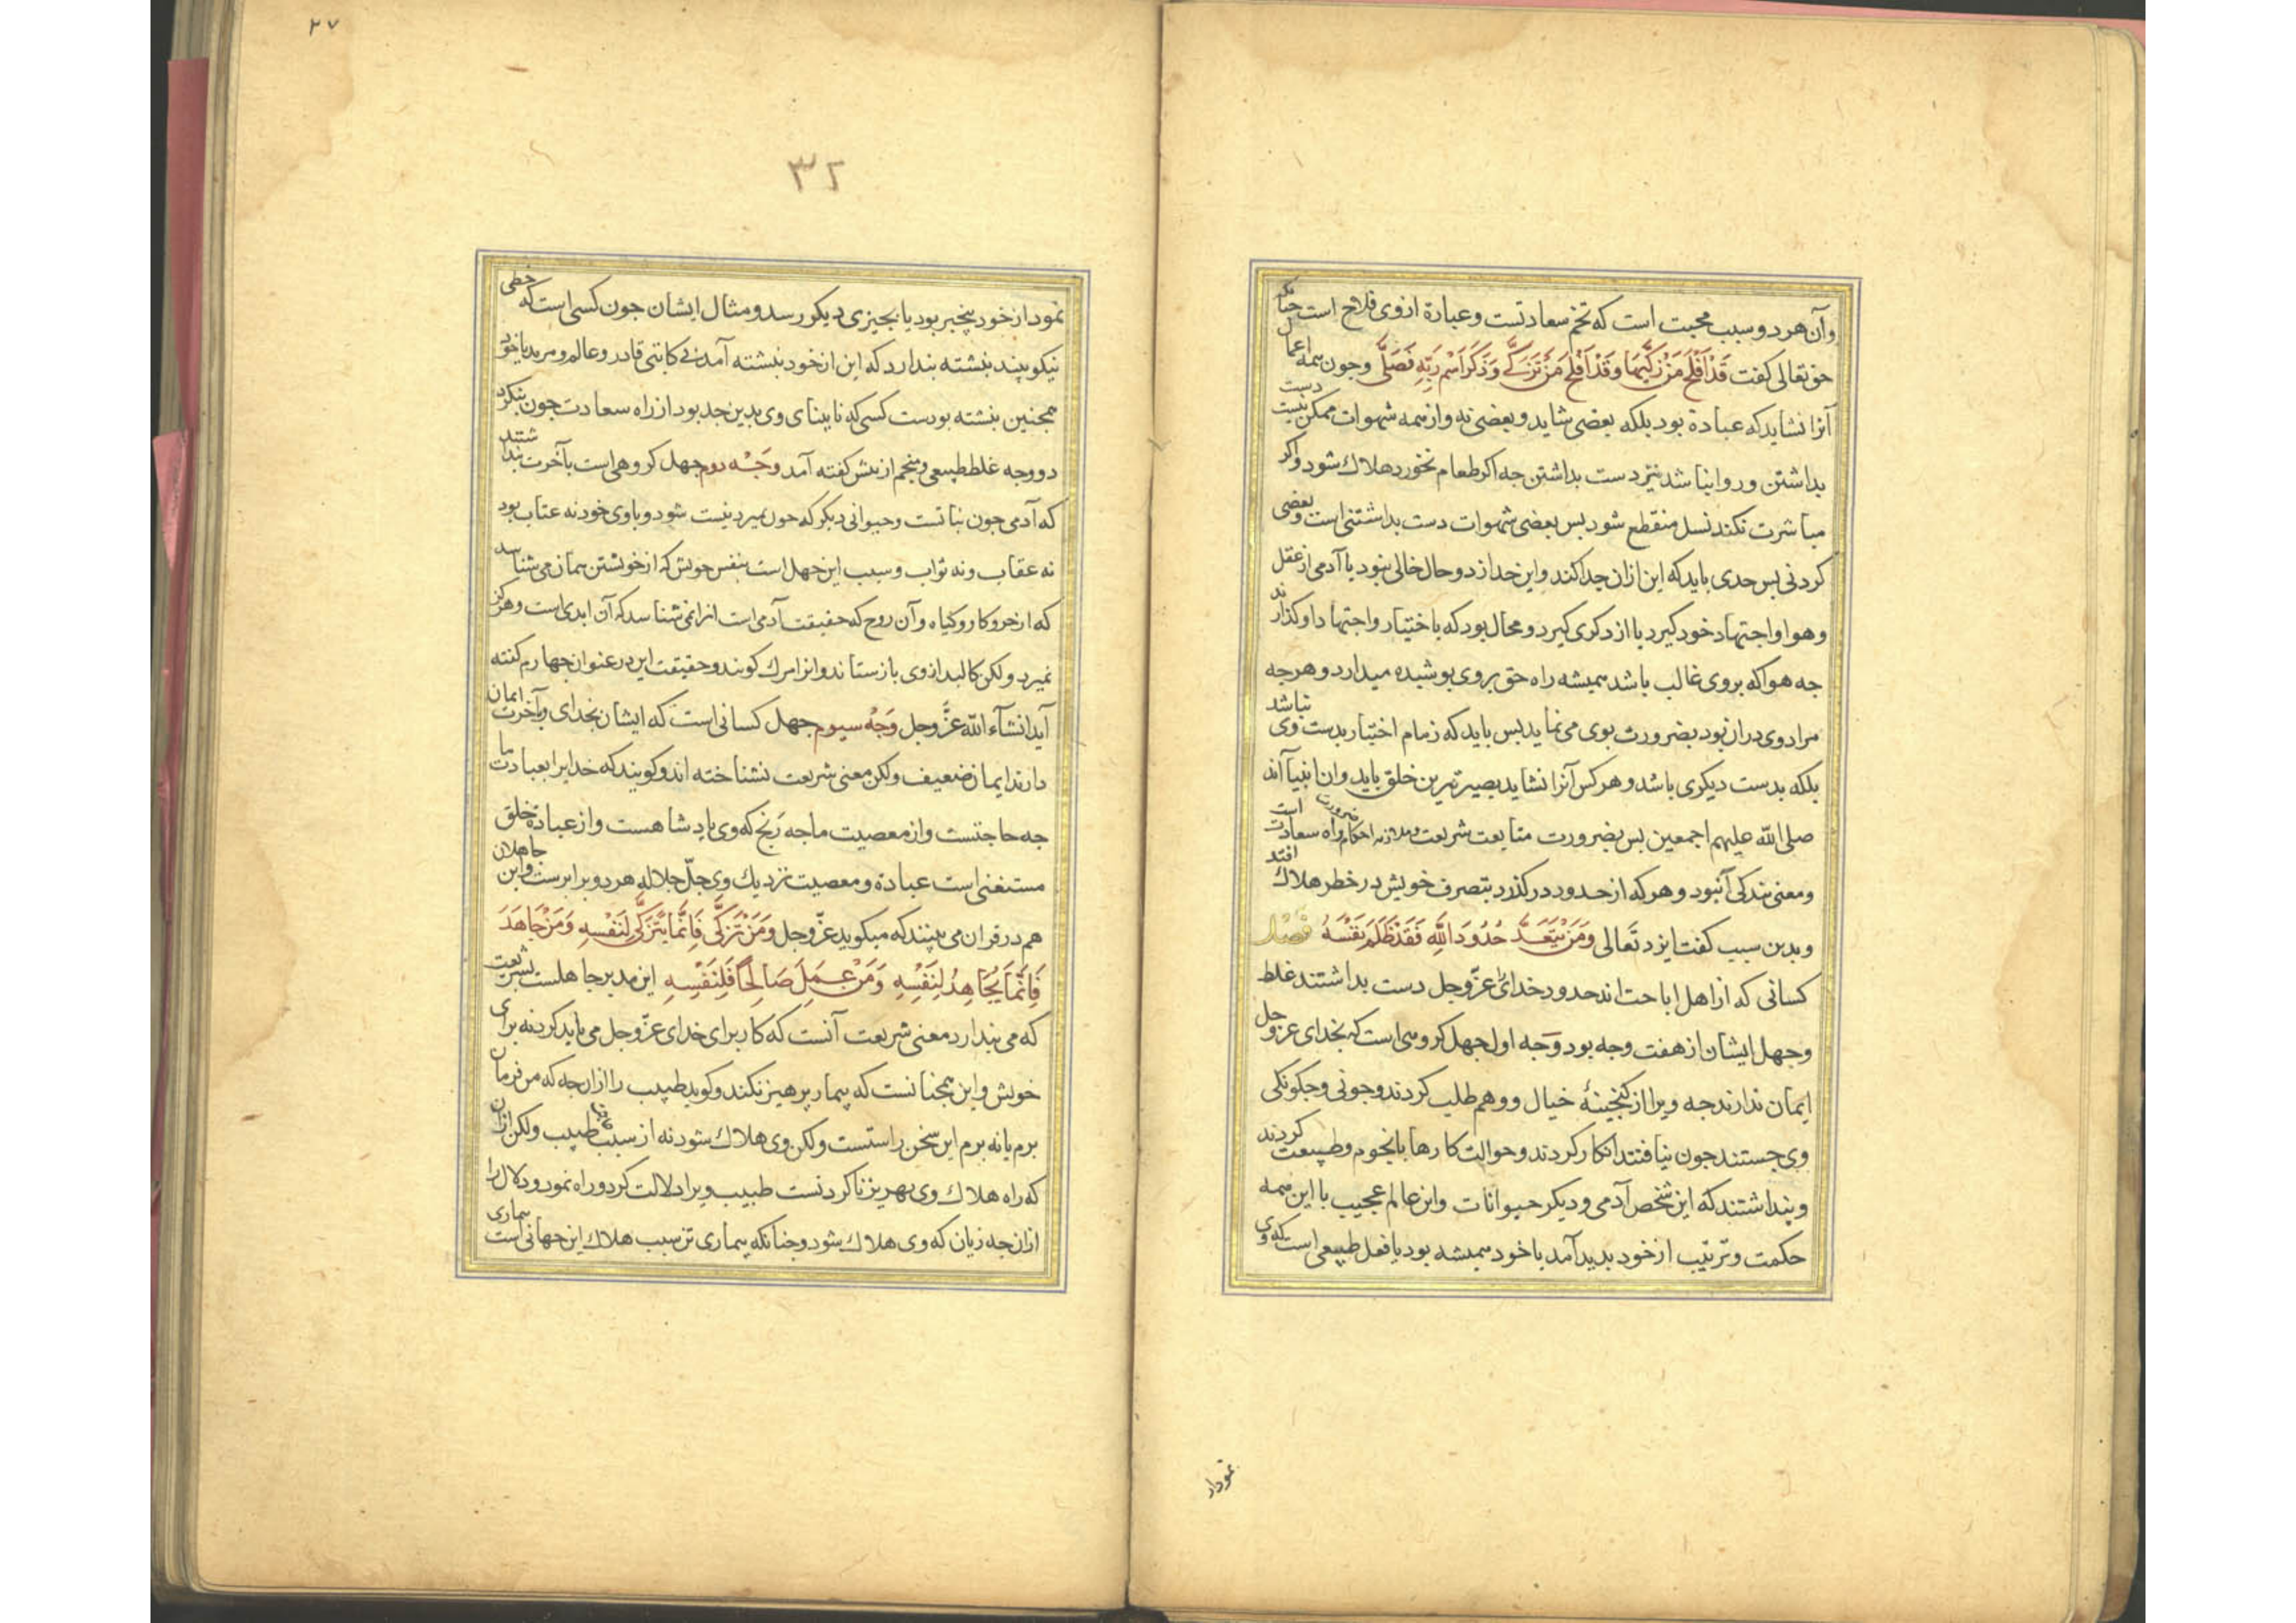 وآن هر دو سبب محبت است که تخم سعادتست و عبادة ازوی فلاح است جنانکه
حق تعالی کفت قَدْ اَفْلَحَ مَنْ زَکّیٰهَا وَقَدْ اَفْلَحَ مَنْ تَزَکّٰی وَذَکَرَ اسْمَ رَبِّهِ فَصَلّٰی وجون همه اعمال
آنرا نشاید که عبادة بود بلکه بعضی شاید و بعضی نه واز همه شهوات ممکن نیست دست
بداشتن وروا نباشد نیز دست بداشتن جه اکر طعام نخورد هلاک شود واکر
مباشرت نکند نسل منقطع شود بس بعضی شهوات دست بداشتنی است وبعضی
کردنی بس حدی باید که این ازان جدا کند واین حد از دو حال خالی نبود یا آدمی از عقل
وهوا واجتهاد خود کیرد یا از دکری کیرد و محال بود که با ختیار واجتهاد او کذارند
جه هوا که بروی غالب باشد همیشه راه حق بروی بوشیده میدارد و هرجه
مراد وی دران بود بضرورت بوی می نماید بس باید که زمام اختیار بدست وی نباشد
بلکه بدست دیکری باشد و هر کس آنرا نشاید بصیرترین خلق باید وان انبیا آند
صلی الله علیهم اجمعین بس بضرورت متابعت شریعت وملازمه احکام ضرورت راه سعادت است
ومعنی بندکی آنبود و هرکه از حدود در کذرد بتصرف خویش در خطر هلاک افتد
وبدین سبب کفت ایزد تَعالی وَمَنْ یَتَعَدَّ حُدُودَ اللّٰهِ فَقَدْ ظَلَمَ نَفْسَهُ فَصْل
کسانی که از اهل اباحت اند حدود خدائ عزّ وجل دست بداشتند غلط
وجهل ایشان از هفت وجه بود وَجه اول جهل کروهی است که بخدای عز وجل
ایمان ندارند جه ویرا از کنجینهٔ خیال ووهم طلب کردند وجونی وجکونکی
وی جستند جون نیافتند انکار کردند وحوالت کارها بانجوم وطبیعت کردند
وبنداشتند که این شخص آدمی ودیکر حیوانات واین عالم عجیب با این همه
حکمت وترتیب از خود بدید آمد یا خود همیشه بود یا فعل طبیعی است که وی
نمودار
۲۷
۳۲
نمود از خود بیخبر بود یا بجیزی دیکر رسد و مثال ایشان جون کسی است که خطی
نیکو بیند بنشته بندارد که این از خود بنشته آمد بی کاتبی قادر وعالم ومرید یا خود
همجنین بنشته بودست کسی که نابینای وی بدین حد بود از راه سعادت جون بنکرد
دو وجه غلط طبیعی ومنجم ازبیش کفته آمد وَجْه دوم جهل کروهی است بآخرت بنداشتند
که آدمی جون نباتست وحیوانی دیکر که جون بمیرد نیست شود وباوی خود نه عتاب بود
نه عقاب ونه ثواب وسبب این جهل است بنفس خویش که از خویشتن همان می شناسد
که از خر و کاو و کیاه وآن روح که حقیقت آدمی است انرا نمی شناسد که آن ابدی است وهرکز
نمیرد ولکن کالبد ازوی بازستانند وانرا مرك کویند وحقیقت این در عنوان جهارم کفته
آید انشآء الله عزَّ وجل وَجْه سیوم جهل کسانی است که ایشان بخدای وبآخرت ایمان
دارند ایمان ضعیف ولکن معنی شریعت نشناخته اند وکویند که خدایرا بعبادت ما
جه حاجتست واز معصیت ما جه رَنج که وی پادشاهست واز عبادة خلق
مستغنی است عبادة ومعصیت نزدیك وی جلّ جلاله هر دو برابرست واین جاهلان
هم در قران می بینند که میکوید عزّ وجل وَمَنْ تَزَکّٰی فَاِنَّمَا یَتَزَکّٰی لِنَفْسِهِ وَمَنْ جَاهَدَ
فَاِنَّمَا یُجَاهِدُ لِنَفْسِهِ وَمَنْ عَمِلَ صَالِحًا فَلِنَفْسِهِ این مدبر جاهلست بشریعت
که می بندارد معنی شریعت آنست که کار برای خدای عزّ وجل می باید کرد نه برای
خویش واین همجنانست که بیمار پرهیز نکند وکوید طبیب را ازان جه که من فرمان
برم یا نه برم این سخن راستست ولکن وی هلاک شود نه از سبب طبیب ولکن ازان
که راه هلاک وی بهریز ناکردنست طبیب ویرا دلالت کرد وراه نمود ودلال را
ازان جه زیان که وی هلاک شود وجنانکه بیماری تن سبب هلاک این جهانی است بیماری